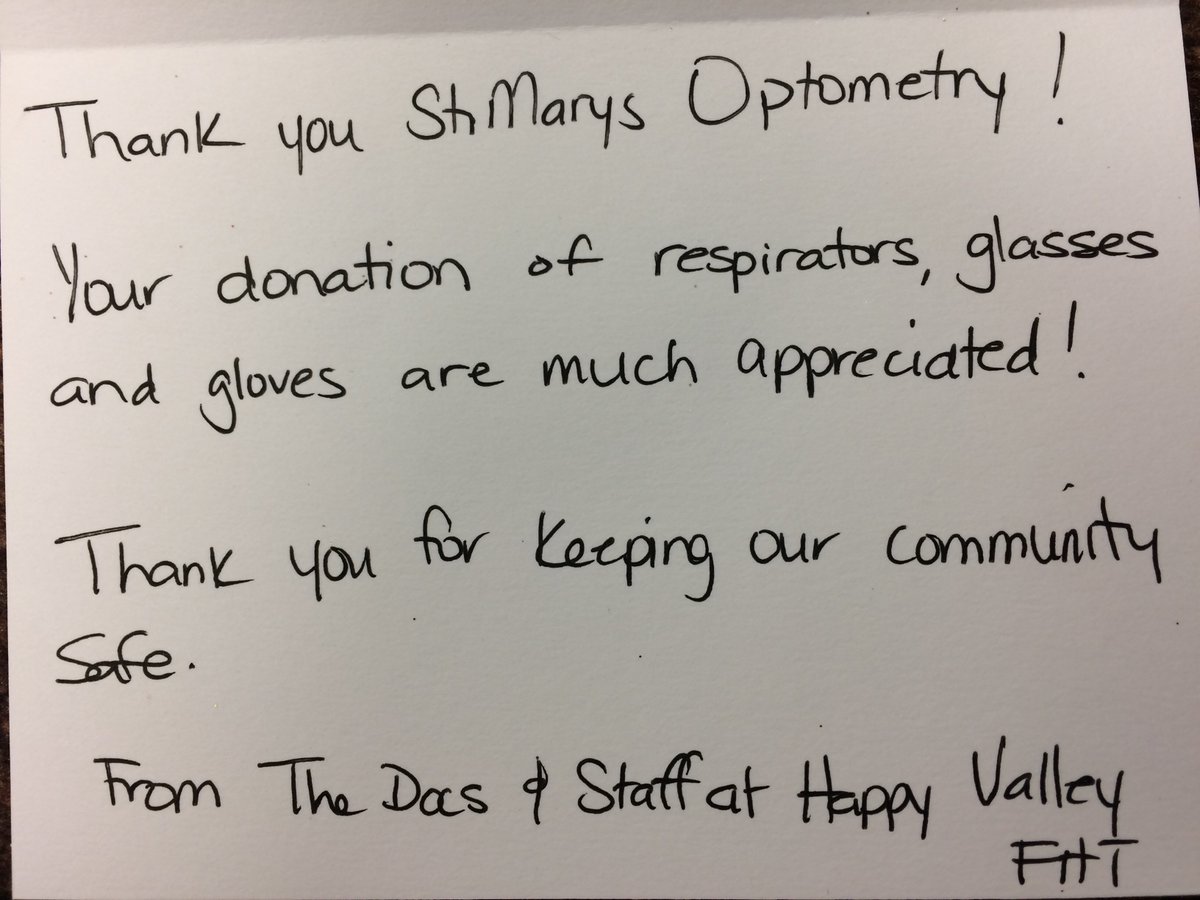 Thank you St Marys Optometry!
Your donation of respirators, glasses
and gloves are much appreciated!
Thank you for keeping our community
safe.
From The Docs & Staff at Happy Valley
FHT